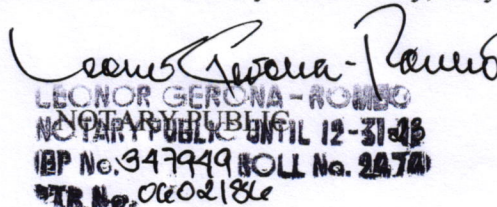 Leonor Gerona-Romulo
LEONOR GERONA-ROMULO
NOTARY PUBLIC
NOTARY PUBLIC UNTIL 12-31-
IBP No. 347949 ROLL No.
PTR No. 0602186